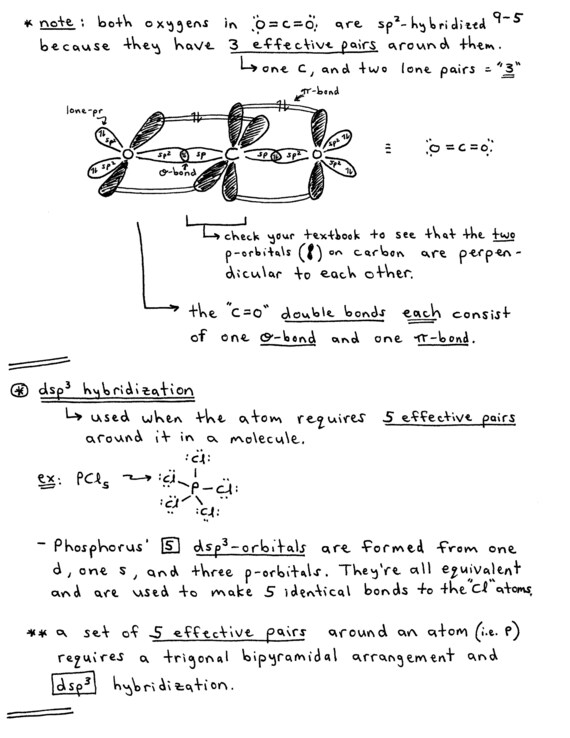 * note: both oxygens in :Ö=C=Ö: are sp²-hybridized 9-5
because they have 3 effective pairs around them.
↳ one C, and two lone pairs = "3"
π-bond
lone-pr
sp² sp² O sp² sp C sp sp² O sp² sp²
≡ :Ö=C=Ö:
σ-bond
↳ check your textbook to see that the two
p-orbitals ( ) on carbon are perpen-
dicular to each other.
→ the "C=O" double bonds each consist
of one σ-bond and one π-bond.
* dsp³ hybridization
↳ used when the atom requires 5 effective pairs
around it in a molecule.
:C̈l:
ex: PCl₅ → :C̈l-P-C̈l:
:C̈l: :C̈l:
- Phosphorus' 5 dsp³-orbitals are formed from one
d, one s, and three p-orbitals. They're all equivalent
and are used to make 5 identical bonds to the "Cl" atoms.
** a set of 5 effective pairs around an atom (i.e. P)
requires a trigonal bipyramidal arrangement and
dsp³ hybridization.